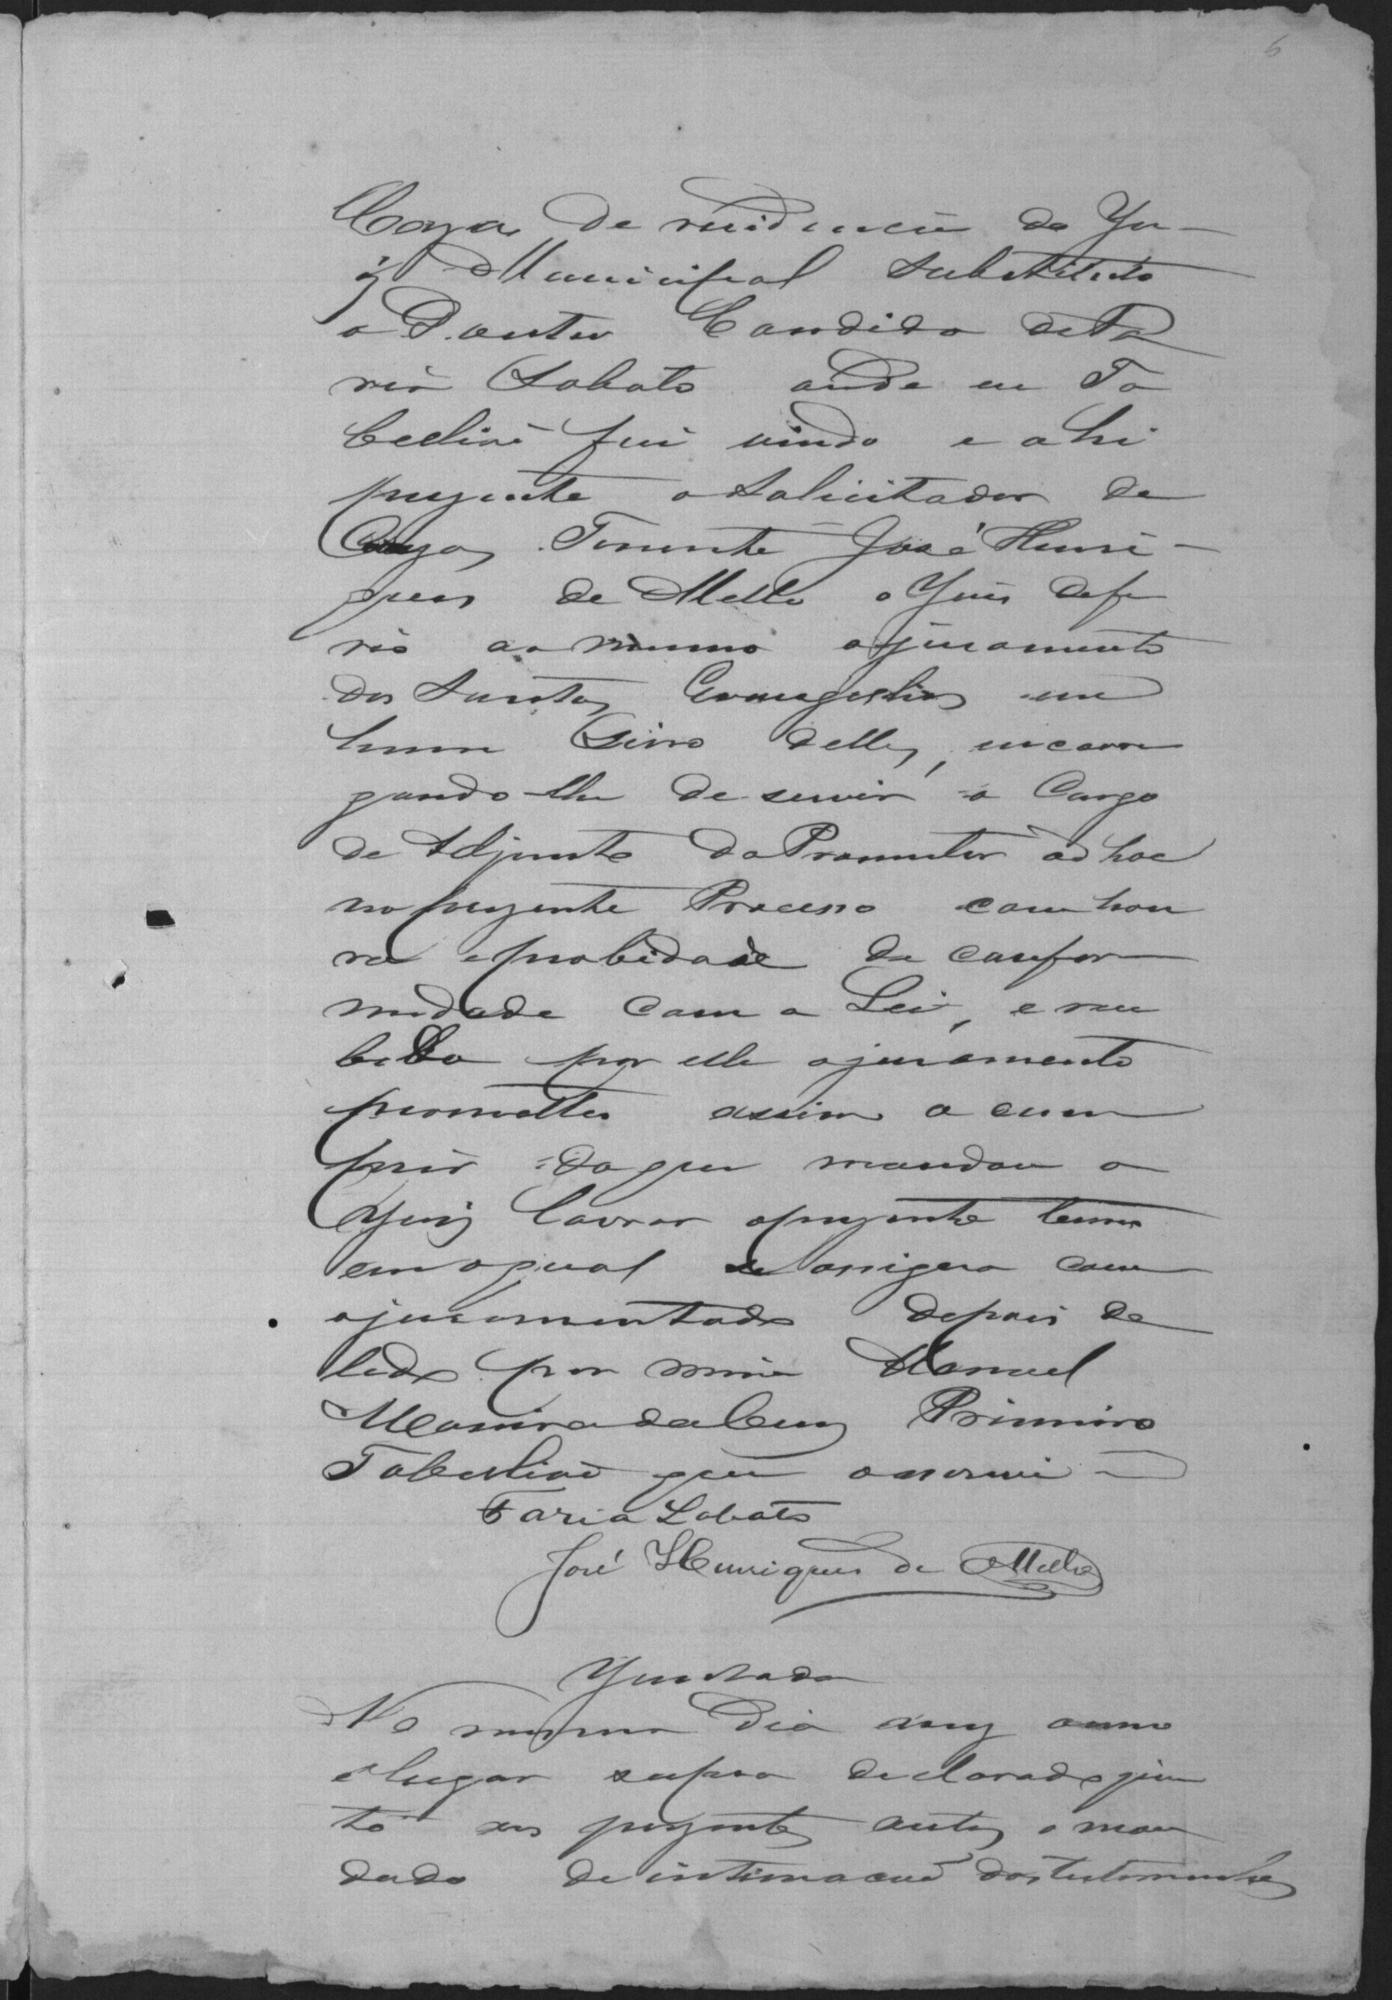 6
Caza de residencia do Ju-
iz Municipal Substituto
o Doutor Candido de Fa
ria Lobato onde eu Ta
belliaõ fui vindo e ahi
prezente o Solicitador de
Cauzas Tenente José Henri-
ques de Mello o Juis defe
rio ao mesmo o juramento
dos Santos Evangelhos em
hum Livro delles, encarre
gando-lhe de servir o Cargo
de Adjunto do Promutor ad hoc
no prezente Processo com hon
ra e probidade de confor
midade com a Lei, e rece
bido por elle o juramento
prometteo assim o cum
prir do que mandou o
Juiz lavrar o prezente termo
em o qual se assigna com
o juramentado depois de
lido por mim Manuel
Moreira da Cruz Primeiro
Tabelliaõ que o escrevi
Faria Lobato
José Henriques de Mello
Juntada
No mesmo dia mez anno
e lugar supra declarado jun
to aos prezentes autos o man
dado de intimacaõ das testemunhas